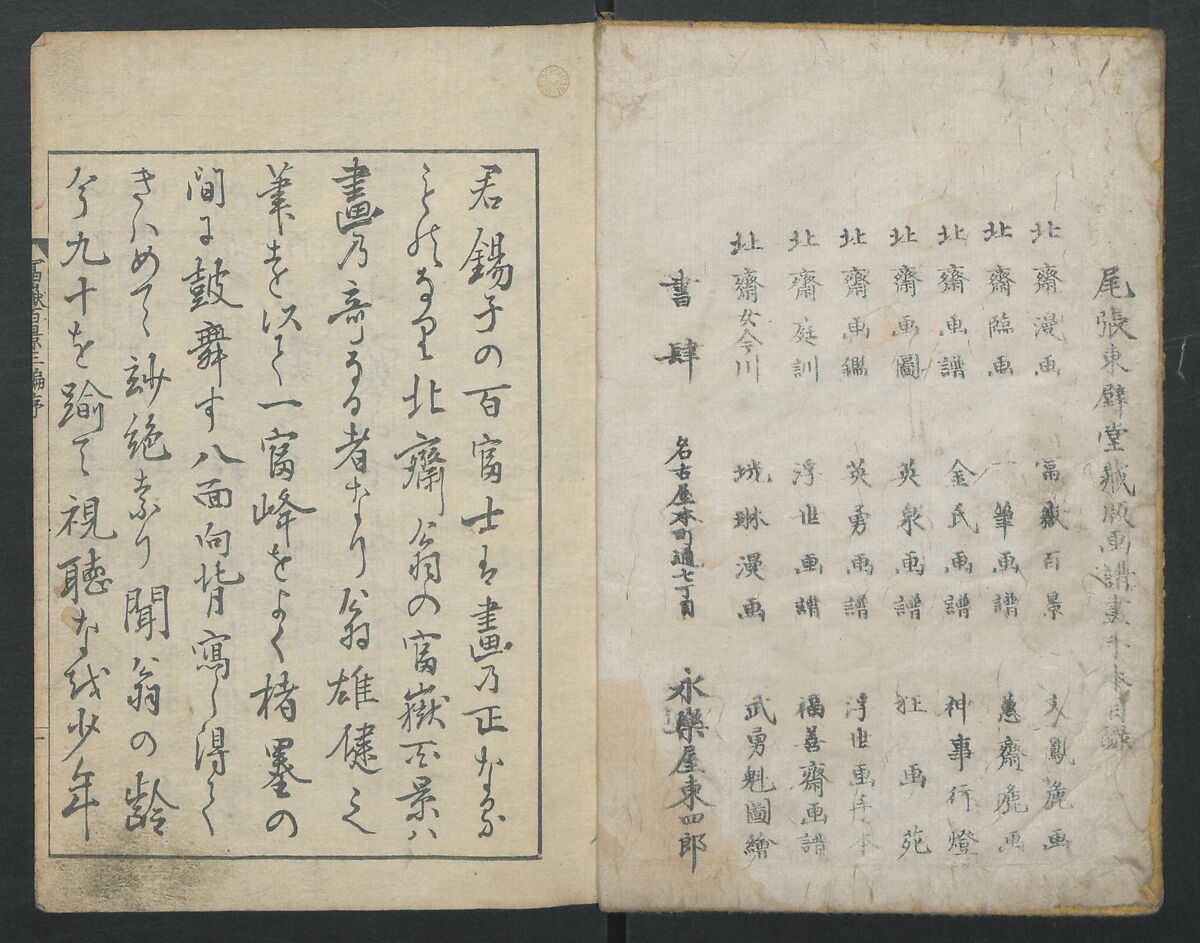 尾張東壁堂藏版画譜畫手本目録
北齋漫画 富嶽百景 文鳳麁画
北齋臨画 一筆画譜 蕙齋麁画
北齋画譜 金氏画譜 神事行燈
北齋画圖 英泉画譜 狂画苑
北齋画鑑 英勇画譜 浮世画手本
北齋庭訓 浮世画譜 福善齋画譜
北齋女今川 琳漫画 武勇魁圖繪
書肆 名古屋本町通七丁目 永樂屋東四郎
君錫子の百富士は畫乃正なる
ものなり北齋翁の富嶽百景ハ
畫乃奇なる者なり翁雄健之
筆を以て一富峰をよく楮墨の
間に鼓舞す八面向背寫し得て
きハめて妙絶なり聞翁の齢
今九十を踰て視聴なを少年
富嶽百景三編序 一